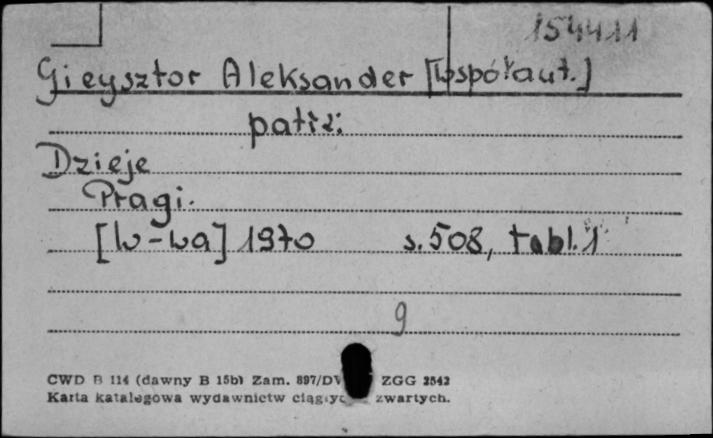 154411
Gieysztor Aleksander [współaut.]
patrz:
Dzieje
Pragi.
[W-wa] 1970 s. 508, tabl. 1
9
CWD B 114 (dawny B 15b) Zam. 897/D ZGG 2542
Karta katalogowa wydawnictw zwartych.